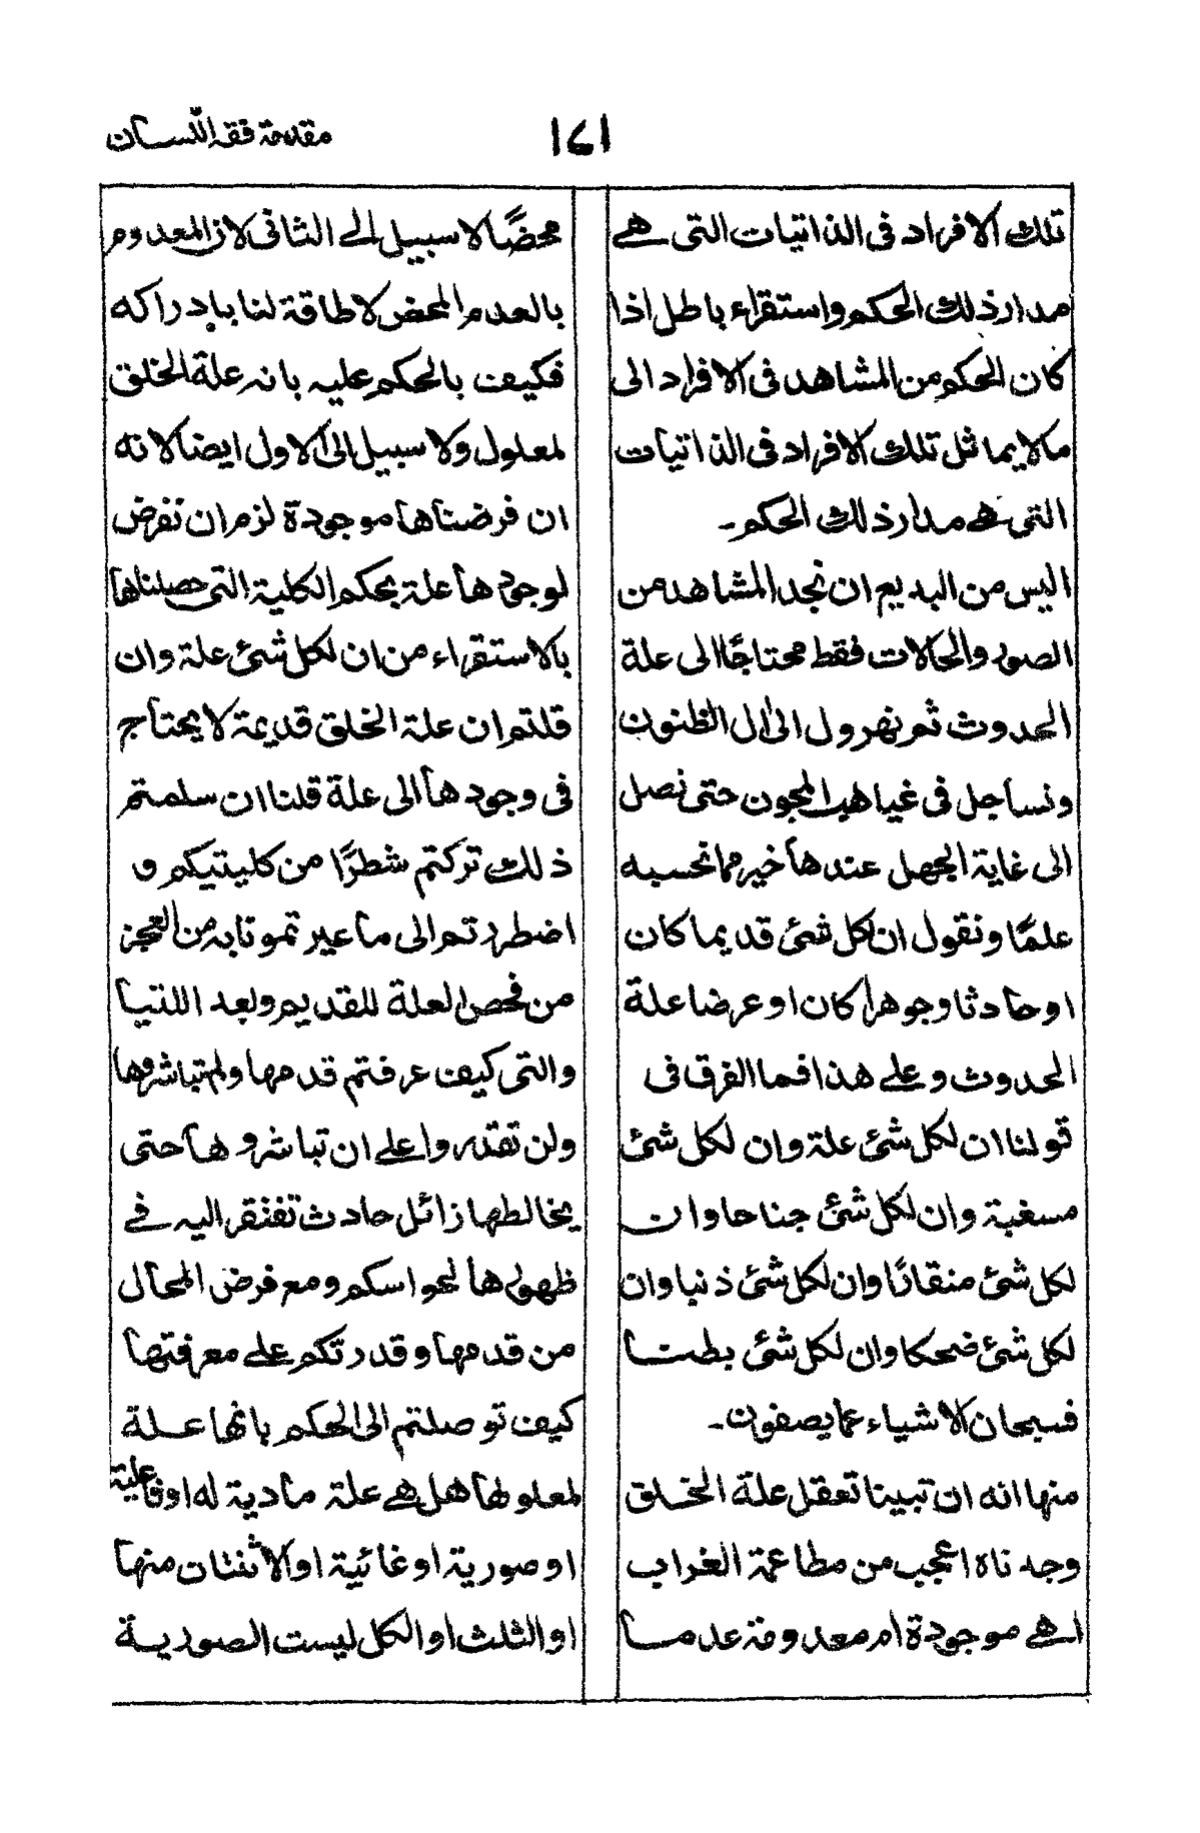 مقدمة فقه اللسان
١٤١
تلك الافراد فى الذاتيات التى هے
مدار ذلك الحكم واستقراء باطل اذا
كان الحكم من المشاهد فى الافراد الى
مالا يماثل تلك الافراد فى الذاتيات
التى هے مدار ذلك الحكم۔
اليس من البديع ان نجد المشاهد من
الصور والحالات فقط محتاجًا الى علة
الحدوث ثم نهرول الى ال الظنون
ونساجل فى غياهب المجون حتى نصل
الى غاية الجهل عندها خير مما نحسبه
علمًا ونقول ان لكل شئ قديما كان
او حادثا وجوهرا كان او عرضا علة
الحدوث وعلے هذا فما الفرق فى
قولنا ان لكل شئ علة وان لكل شئ
مسغبة وان لكل شئ جناحا وان
لكل شئ منقارًا وان لكل شئ ذنبا وان
لكل شئ ضحكا وان لكل شئ بطنا
فسبحان الاشياء عما يصفون۔
منها انه ان تبينا تعقل علة الخلق
وجدناه اعجب من مطاعمة الغراب
اهے موجودة ام معدومة عدما
محضًا لا سبيل الے الثانى لان المعدوم
بالعدم المحض لا طاقة لنا بادراكه
فكيف بالحكم عليه بانه علة الخلق
لمعلول ولا سبيل الى الاول ايضا لانه
ان فرضناها موجودة لزم ان نفرض
لوجودها علة بحكم الكلية التى حصلناها
بالاستقراء من ان لكل شئ علة وان
قلتم ان علة الخلق قديمة لا يحتاج
فى وجودها الى علة قلنا ان سلمتم
ذلك تركتم شطرًا من كليتيكم و
اضطررتم الى ما عيرتمونا به من العجز
من فحص العلة للقديم وبعد اللتيا
والتى كيف عرفتم قدمها ولم تباشروها
ولن تقدروا علے ان تباشروها حتى
يخالطها زائل حادث تفتقر اليه فے
ظهورها لحواسكم ومع فرض المحال
من قدمها وقدرتكم علے معرفتها
كيف توصلتم الى الحكم بانها علة
لمعلولها هل هے علة مادية له او فاعلية
او صورية او غائية او الاثنتان منها
او الثلث او الكل ليست الصورية